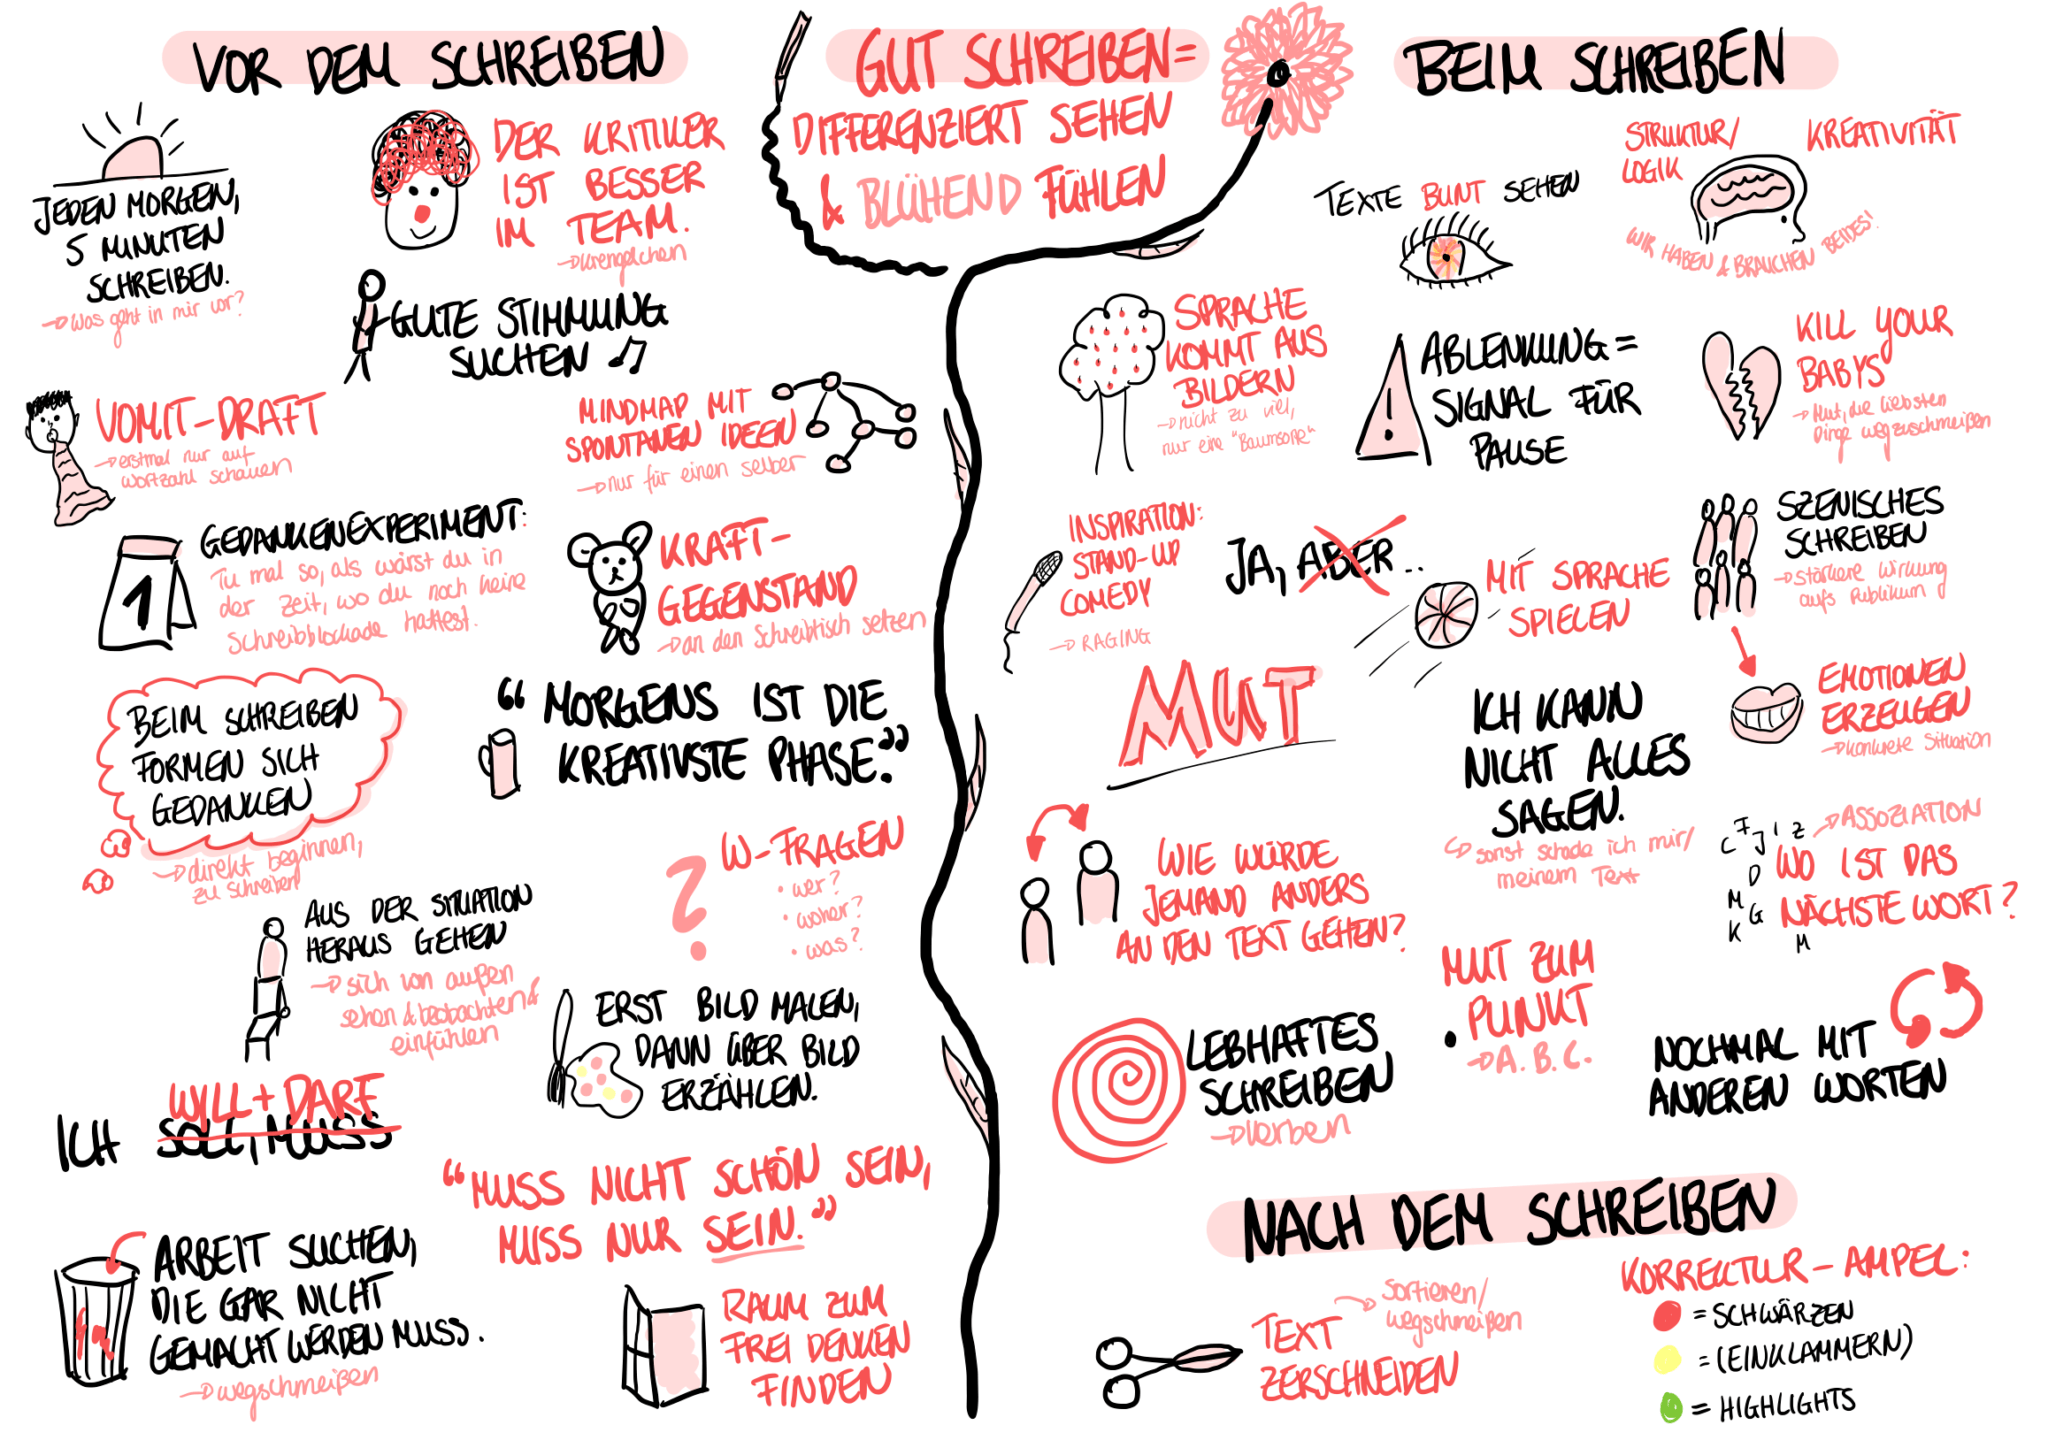 VOR DEM SCHREIBEN
JEDEN MORGEN,
5 MINUTEN
SCHREIBEN.
→ Was geht in mir vor?
DER KRITIKER
IST BESSER
IM TEAM.
→ Krengelchen
GUTE STIMMUNG
SUCHEN
VOMIT-DRAFT
→ erstmal nur auf
Wortzahl schauen
MINDMAP MIT
SPONTANEN IDEEN
→ nur für einen selber
1
GEDANKENEXPERIMENT:
Tu mal so, als wärst du in
der Zeit, wo du noch keine
Schreibblockade hattest.
KRAFT-
GEGENSTAND
→ an den Schreibtisch setzen
BEIM SCHREIBEN
FORMEN SICH
GEDANKEN
→ direkt beginnen,
zu schreiben
“MORGENS IST DIE
KREATIVSTE PHASE.”
W-FRAGEN
• wer?
• woher?
• was?
?
AUS DER SITUATION
HERAUS GEHEN
→ sich von außen
sehen & beobachten &
einfühlen
ERST BILD MALEN,
DANN ÜBER BILD
ERZÄHLEN.
WILL + DARF
ICH SOLL, MUSS
“MUSS NICHT SCHÖN SEIN,
MUSS NUR SEIN.”
ARBEIT SUCHEN,
DIE GAR NICHT
GEMACHT WERDEN MUSS.
→ wegschmeißen
RAUM ZUM
FREI DENKEN
FINDEN
GUT SCHREIBEN =
DIFFERENZIERT SEHEN
& BLÜHEND FÜHLEN
BEIM SCHREIBEN
TEXTE BUNT SEHEN
STRUKTUR/
LOGIK
KREATIVITÄT
WIR HABEN & BRAUCHEN BEIDES!
SPRACHE
KOMMT AUS
BILDERN
→ nicht zu viel,
nur eine "Baumsorte"
!
ABLENKUNG =
SIGNAL FÜR
PAUSE
KILL YOUR
BABYS
→ Mut, die liebsten
Dinge wegzuschmeißen
INSPIRATION:
STAND-UP
COMEDY
→ RAGING
JA, ABER...
MIT SPRACHE
SPIELEN
SZENISCHES
SCHREIBEN
→ stärkere Wirkung
aufs Publikum
EMOTIONEN
ERZEUGEN
→ konkrete Situation
MUT
ICH KANN
NICHT ALLES
SAGEN.
→ sonst schade ich mir/
meinem Text
WIE WÜRDE
JEMAND ANDERS
AN DEN TEXT GEHEN?
→ ASSOZIATION
C F J I Z
D
M G
K M
WO IST DAS
NÄCHSTE WORT?
MUT ZUM
• PUNKT
→ A. B. C.
LEBHAFTES
SCHREIBEN
→ Verben
NOCHMAL MIT
ANDEREN WORTEN
NACH DEM SCHREIBEN
TEXT
ZERSCHNEIDEN
→ Sortieren/
wegschmeißen
KORREKTUR-AMPEL:
= SCHWÄRZEN
= (EINKLAMMERN)
= HIGHLIGHTS